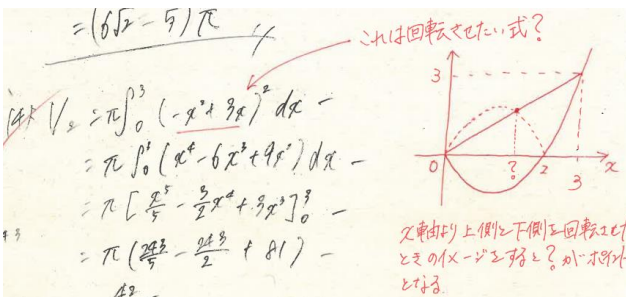 = (6√2 - 5)π
これは回転させたい式?
(4) V₂ = π∫₀³ (-x²+3x)² dx
= π∫₀³ (x⁴-6x³+9x²) dx
= π[x⁵/5 - 3/2 x⁴ + 3x³]₀³
= π(243/5 - 243/2 + 81)
3
0
?
2
3
x
x軸より上側と下側を回転させた
ときのイメージをすると?がポイント
となる.